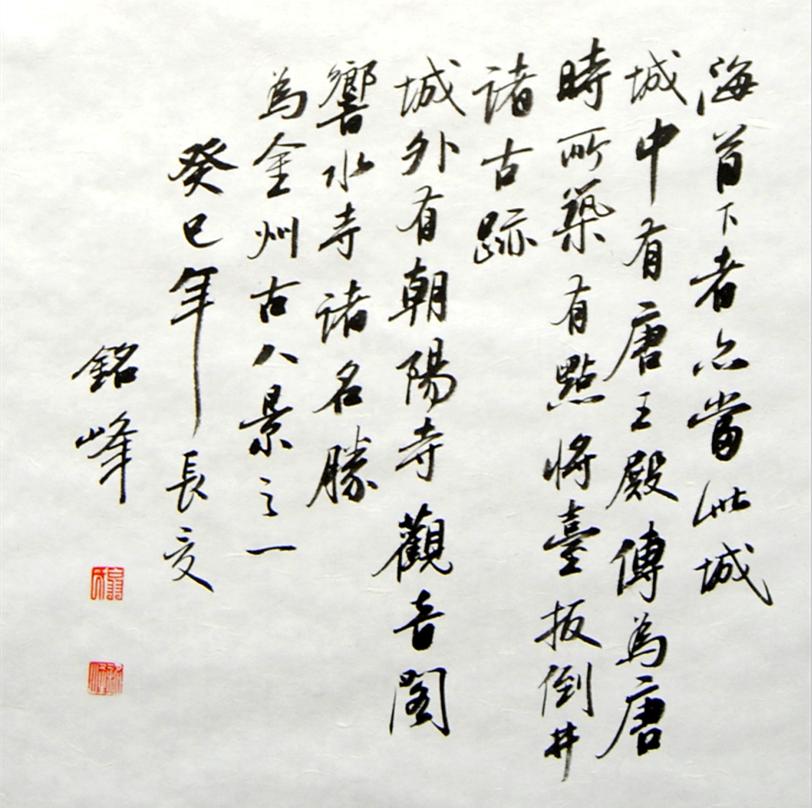 海首下者亦當此城
城中有唐王殿傳為唐
時所築有點將臺扳倒井
諸古跡
城外有朝陽寺觀音閣
響水寺諸名勝
為金州古八景之一
癸巳年長夏
銘峰